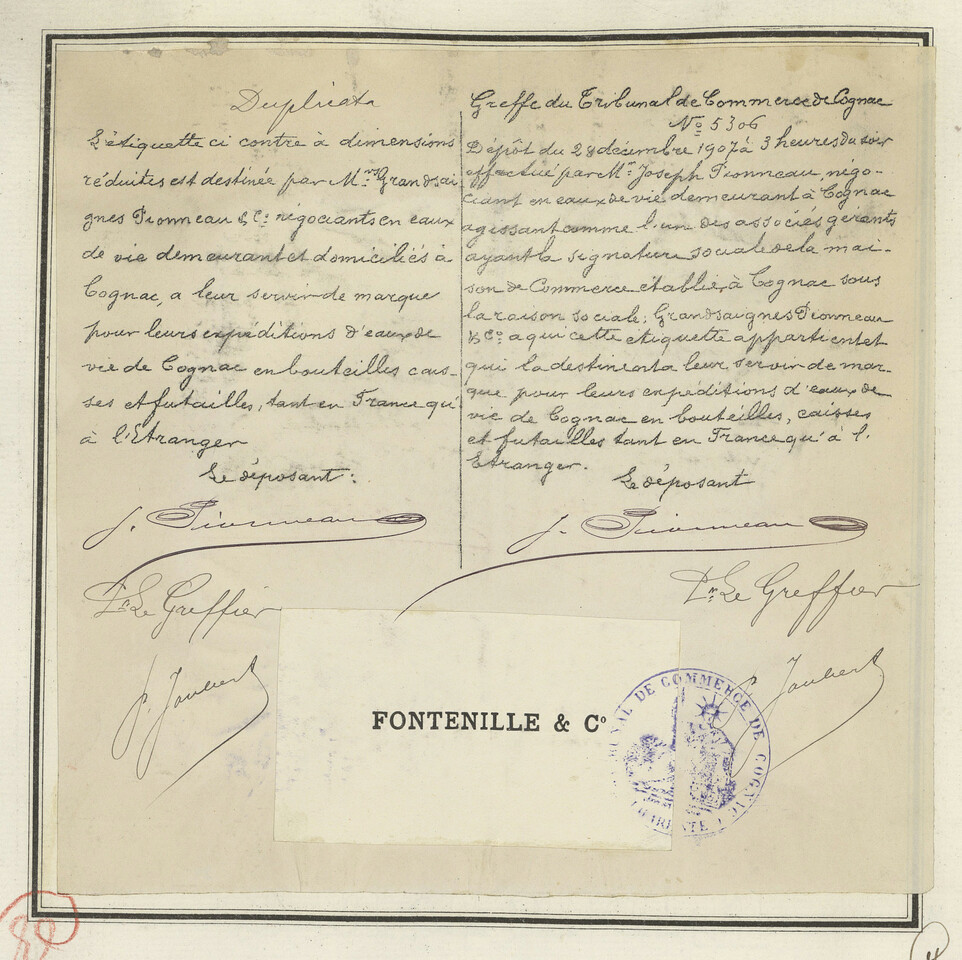 Duplicata
L'étiquette ci contre à dimensions
réduites est destinée par M.rs Grandsai
gnes Pionneau & Co. négociants en eaux
de vie demeurant et domiciliés à
Cognac, a leur servir de marque
pour leurs expéditions d'eaux de
vie de Cognac en bouteilles cais-
ses et futailles, tant en France qu'
à l'Etranger
Le déposant :
J. Pionneau
Pr. Le Greffier
P. Joubert
Greffe du Tribunal de Commerce de Cognac
No 5306
Dépôt du 28 décembre 1907 à 3 heures du soir
effectué par Mr. Joseph Pionneau, négo-
ciant en eaux de vie demeurant à Cognac
agissant comme l'un des associés gérants
ayant la signature sociale de la mai-
son de Commerce établie, à Cognac sous
la raison sociale: Grandsaignes Pionneau
& Co. a qui cette etiquette appartient et
qui la destinent a leur servir de mar-
que pour leurs expéditions d'eaux de
vie de Cognac en bouteilles, caisses
et futailles tant en France qu'à l'
Etranger.
Le déposant
J. Pionneau
Pr. Le Greffier
P. Joubert
FONTENILLE & Co
TRIBUNAL DE COMMERCE DE COGNAC
CHARENTE